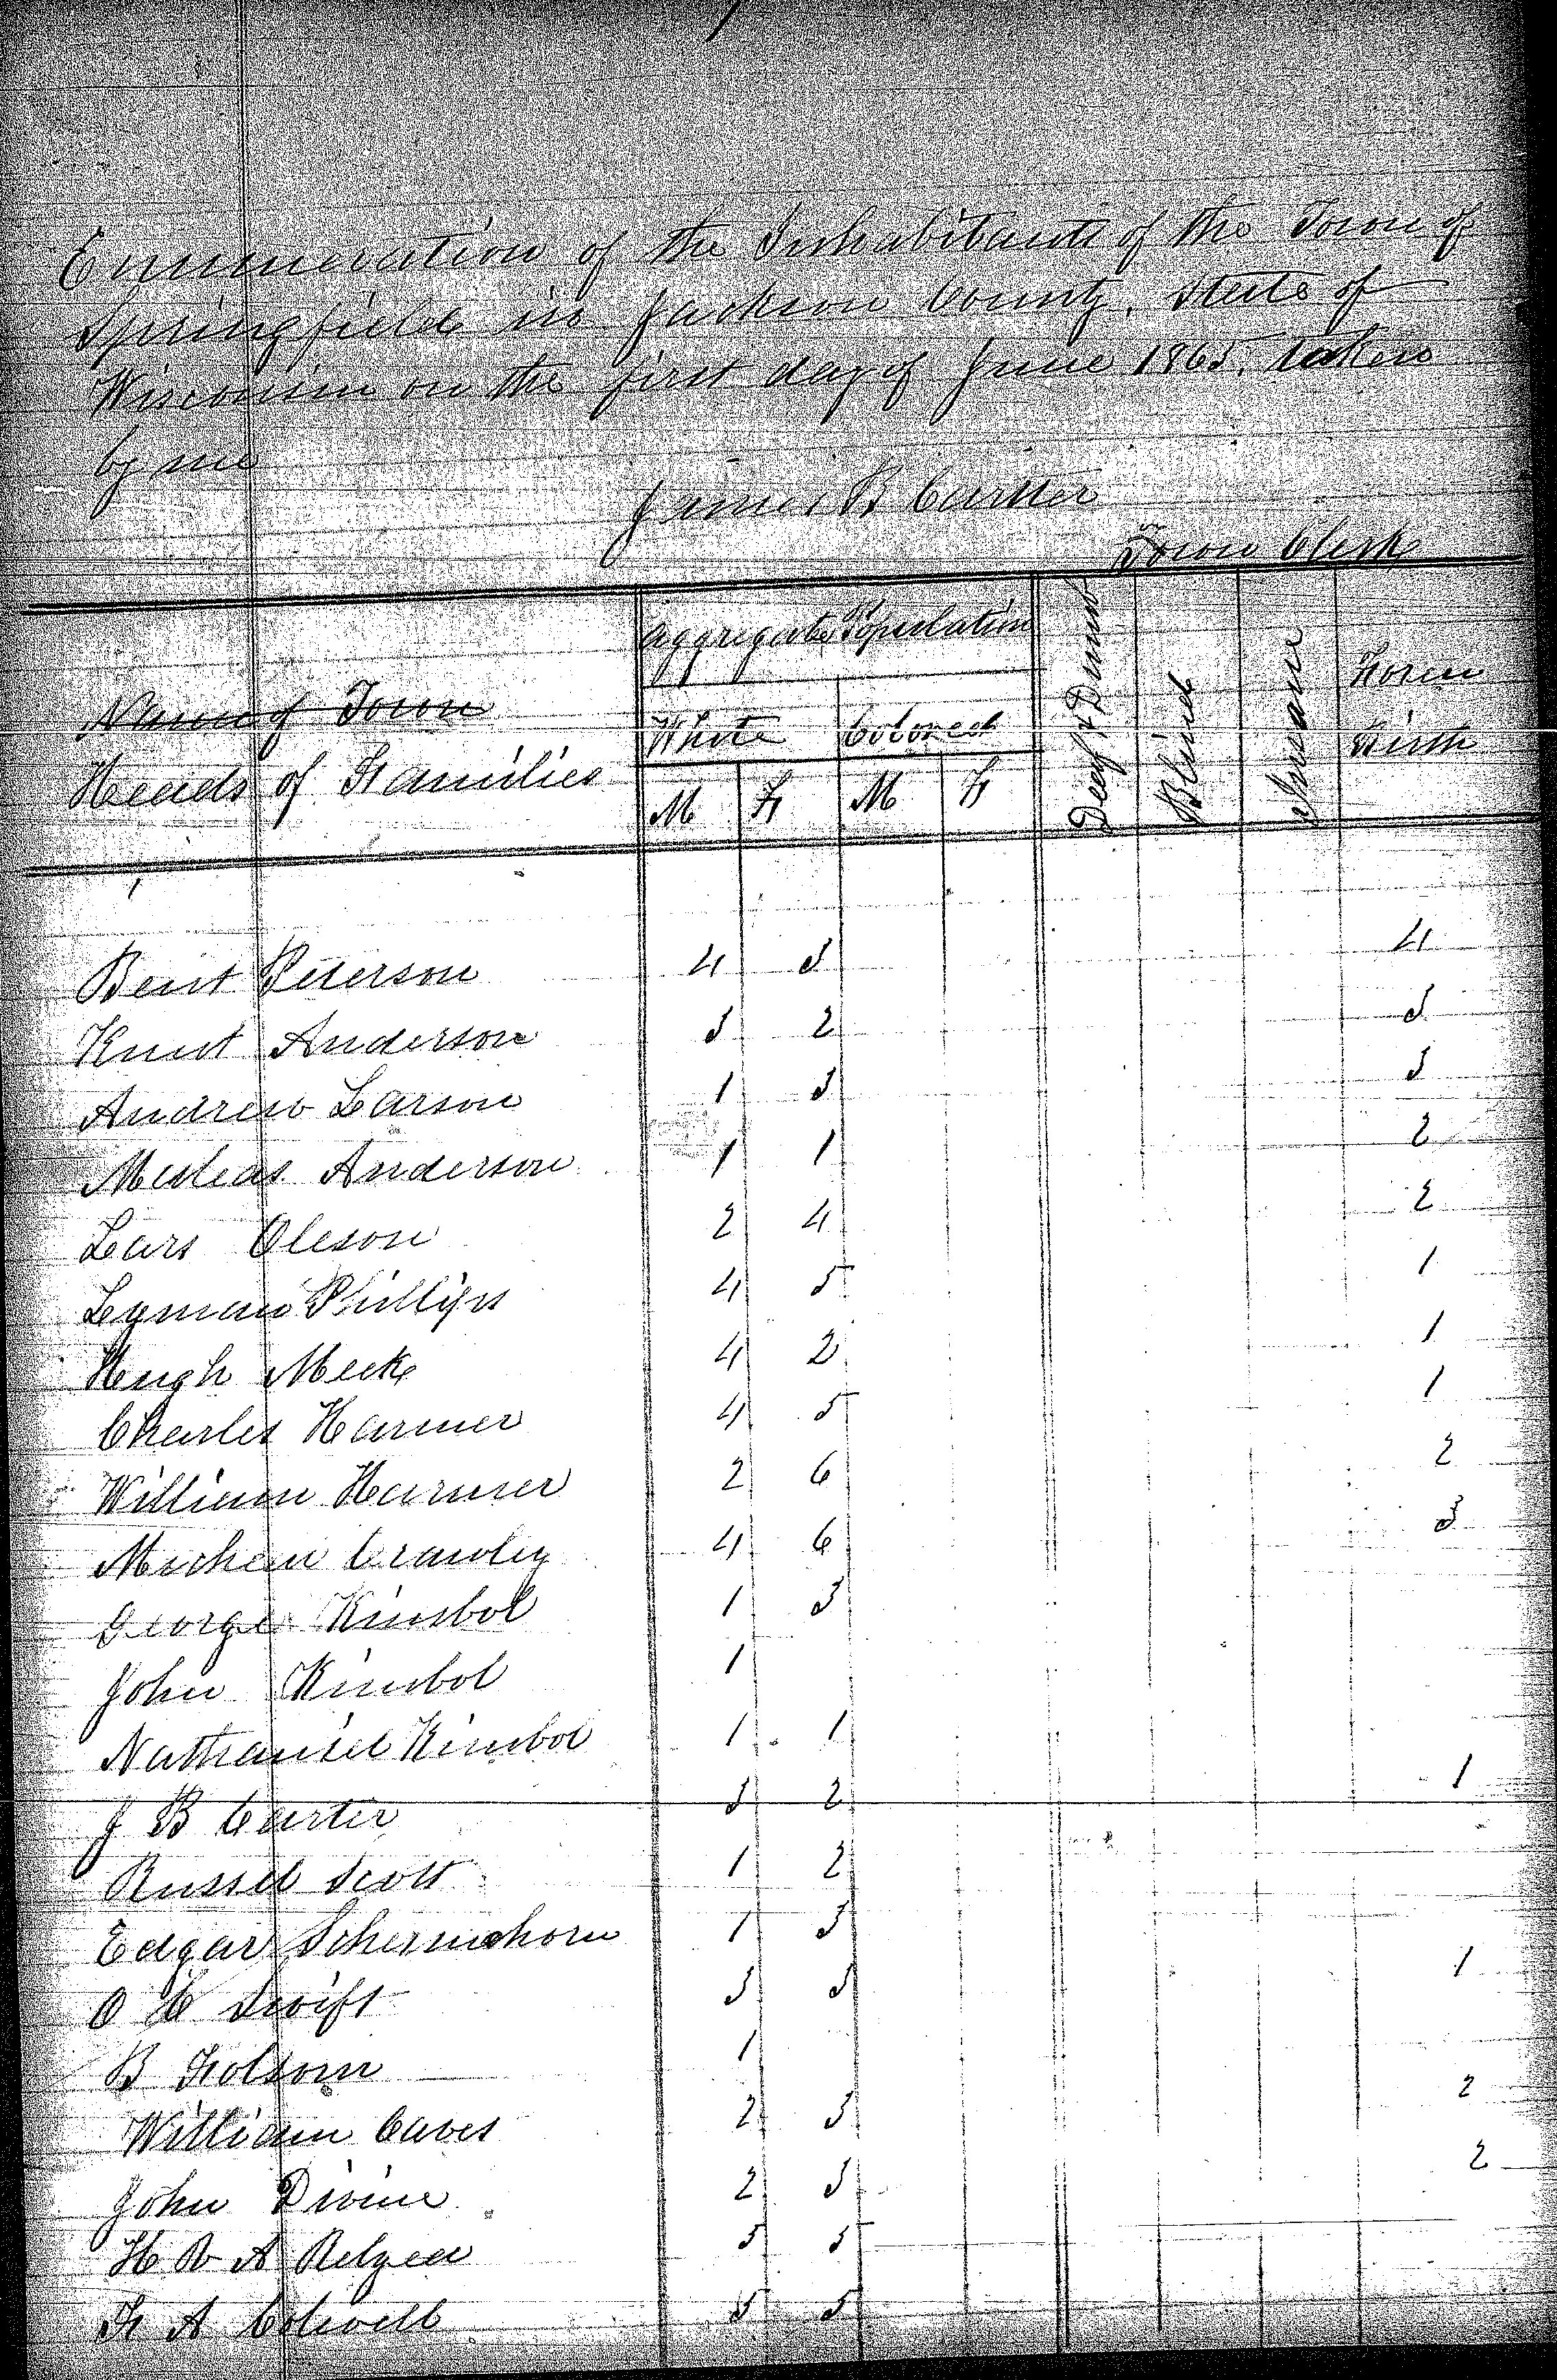 Enumeration of the Inhabitants of the Town of
Springfield in Jackson County, State of
Wisconsin on the first day of June 1865. taken
by me
James B Carter
Town Clerk
Aggregate Population
Name of Town
Heads of Families
White Colored
M F M F
Deaf & Dumb
Blind
Insane
Foren
Birth
Bent Peterson 4 3 4
Knut Anderson 3 2 3
Andrew Larson 1 3 3
Anderson 1 1 2
Lars Oleson 2 4 2
Lyman Phillips 4 5 1
Hugh Meek 4 2 1
Charles Harmer 4 5 1
William Harmer 2 6 2
Crawley 4 6 3
George Kimbol 1 3
John Kimbol 1
Nathaniel Kimbol 1 1
J B Carter 3 2 1
Russel Scott 1 2
Edgar Schermehorn 1 3
O C Swift 3 3 1
B Folsom 1
William Caves 2 3 2
John Divine 2 3 2
H R A
F A Colwell